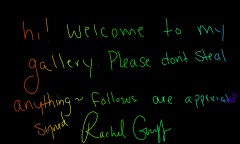 hi! Welcome to my
gallery. Please don't steal
anything~ Follows are
Signed Rachel